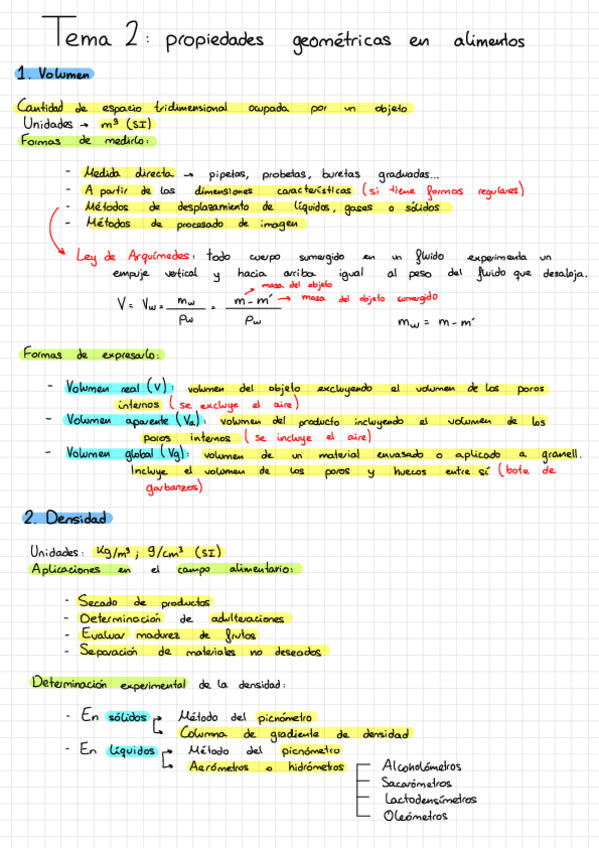 Tema 2: propiedades geométricas en alimentos
1. Volumen
Cantidad de espacio tridimensional ocupada por un objeto
Unidades → m³ (SI)
Formas de medirlo:
- Medida directa → pipetas, probetas, buretas graduadas...
- A partir de las dimensiones características (si tiene formas regulares)
- Métodos de desplazamiento de líquidos, gases o sólidos
- Métodos de procesado de imagen
Ley de Arquímedes: todo cuerpo sumergido en un fluido experimenta un
empuje vertical y hacia arriba igual al peso del fluido que desaloja.
V = Vw = mw/ρw = m - m'/ρw
masa del objeto
masa del objeto sumergido
mw = m - m'
Formas de expresarlo:
- Volumen real (V): volumen del objeto excluyendo el volumen de los poros
internos (se excluye el aire)
- Volumen aparente (Va): volumen del producto incluyendo el volumen de los
poros internos (se incluye el aire)
- Volumen global (Vg): volumen de un material envasado o aplicado a granell.
Incluye el volumen de los poros y huecos entre sí (bote de
garbanzos)
2. Densidad
Unidades: Kg/m³; g/cm³ (SI)
Aplicaciones en el campo alimentario:
- Secado de productos
- Determinación de adulteraciones
- Evaluar madurez de frutos
- Separación de materiales no deseados
Determinación experimental de la densidad:
- En sólidos → Método del picnómetro
→ Columna de gradiente de densidad
- En líquidos → Método del picnómetro
→ Aerómetros o hidrómetros
Alcoholómetros
Sacarómetros
Lactodensímetros
Oleómetros